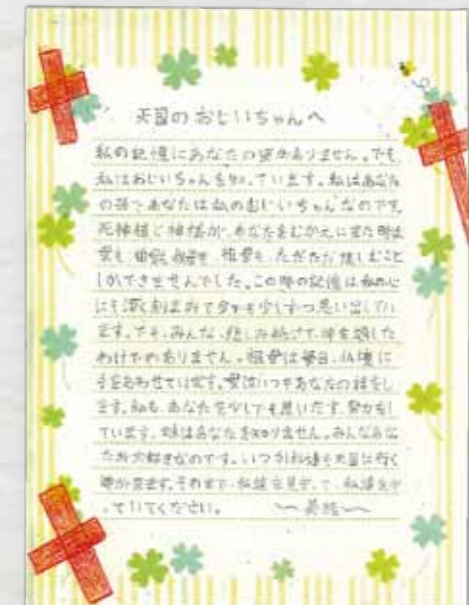 天国のおじいちゃんへ
私の記憶にあなたの姿がありません。でも
私はおじいちゃんを知っています。私はあなた
の孫であなたは私のおじいちゃんなのです。
死神様と神様が、あなたをむかえに来た時は
祖母も、ただただ悲しむこと
しかできませんでした。この時の記憶は私の心
にも深く刻まれて今でも少しずつ思い出してい
ます。でも、みんな、悲しみ続けて、時を過した
わけではありません。祖母は毎日、仏壇に
手をあわせています。愛はいつもあなたの話をし
ます。私も、あなたを少しでも思いだす
ています。妹はあなたを知りません。みんなあな
たが大好きなのです。いつか私達も天国に行く
時が来ます。それまで、私達を見守って、私達を
っていてください。